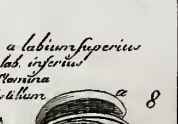 a labium superius
lab. inferius
Stamina
istillum
a 8